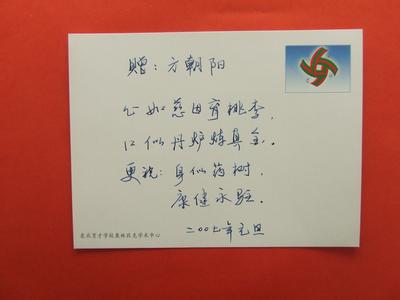 赠：方朝阳
心如慈田育桃李，
口似丹炉炼真金。
更祝：身似药树，
康健永驻。
二〇〇七年元旦
北京育才学校奥林匹克学术中心